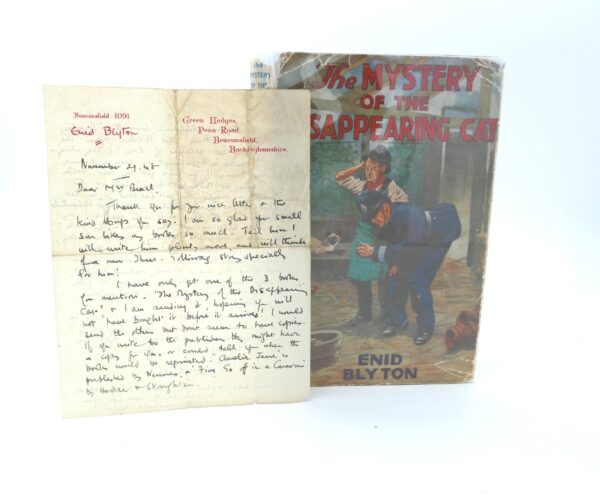 Beaconsfield 1091
Enid Blyton
Green Hedges,
Penn Road,
Beaconsfield,
Buckinghamshire.
November 29. 48
Dear Mrs
Thank you for your nice letter & the
kind things you say. I am so glad your small
son likes my books so much. Tell him I
will write him plenty more, and will think
of a new story specially
for him!
I have only got one of the 3 books
you mention. "The Mystery of the Disappearing
Cat" & I am sending it hoping you will
not have bought it before it arrives! I would
send the others but don't seem to have copies.
If you write to the publishers they might have
a copy for you, or could tell you when the
books would be reprinted. Amelia Jane is
published by Newnes, & Five Go off in a Caravan
by Hodder & Stoughton
THE
MYSTERY
OF THE
The MYSTERY
OF THE
DISAPPEARING CAT
ENID
BLYTON